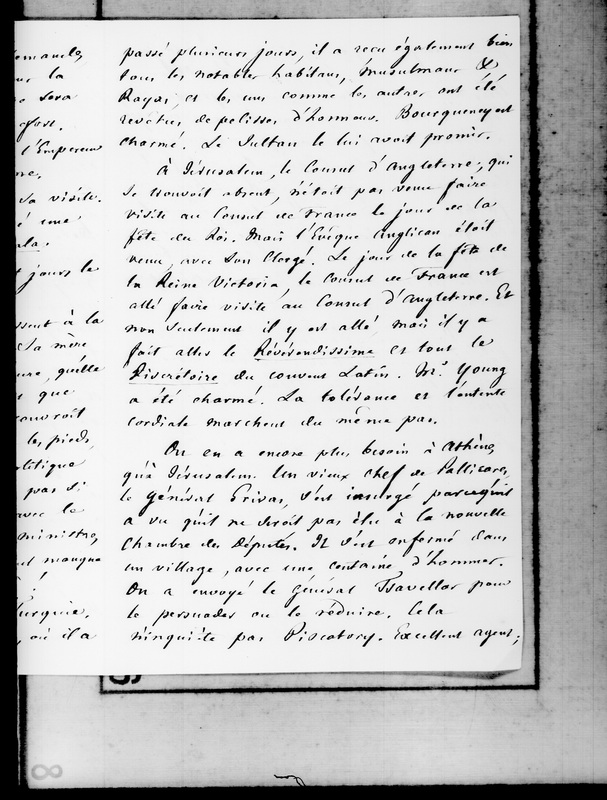 emandes
ur la
e sera
l'Empereur
sa visite.
é une
ala.
t jours le
ssent à la
sa mère
ure, qu'elle
t que
ouvroit
les pieds,
olitique
pas si
avec le
ministre,
manque
Turquie,
, où il a
passé plusieurs jours, il a reçu également bien
tous les notables habitans, Musulmans &
Rayas, et les uns comme les autres ont été
revêtus de pelisses d'honneur. Bourqueney est
charmé. Le Sultan le lui avait promis.
À Jérusalem, le Consul d'Angleterre, qui
se trouvoit absent, n'étoit pas venu faire
visite au Consul de France le jour de la
fête du Roi. Mais l'Evêque anglican étoit
venu, avec son Clergé. Le jour de la fête de
la Reine Victoria, le Consul de France est
allé faire visite au Consul d'Angleterre. Et
non seulement il y est allé mais il y a
fait aller le Révérendissime et tout le
Discrétoire du couvent Latin. Mr. Young
a été charmé. La tolérance et l'entente
cordiale marchent du même pas.
On en a encore plus besoin à Athènes
qu'à Jérusalem. Un vieux chef de Pallicares,
le général Grivas, s'est insurgé parcequ'il
a vu qu'il ne seroit pas élu à la nouvelle
Chambre des Députés. Il s'est enfermé dans
un village, avec une centaine d'hommes.
On a envoyé le général Tsavellas pour
le persuader ou le réduire. Cela
n'inquiète pas Piscatory. Excellent agent;
8